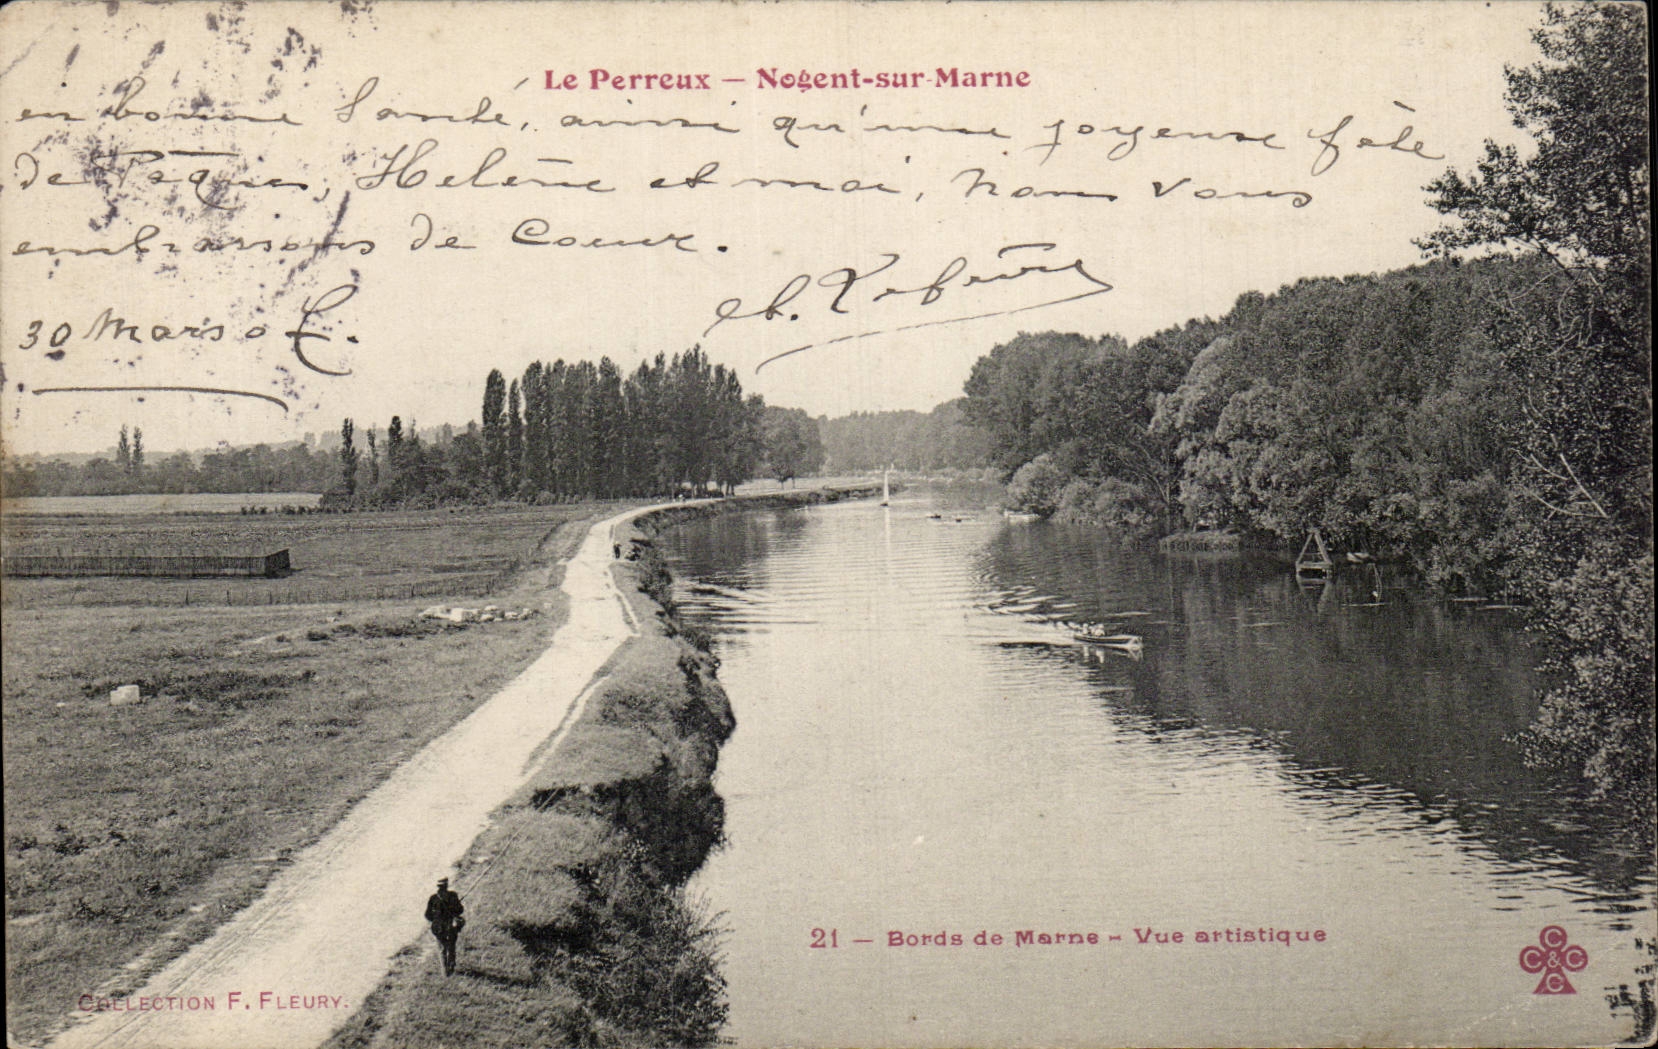 Le Perreux — Nogent-sur-Marne
en bonne Santé, ainsi qu'une joyeuse fête
de Pâques, Helène et moi, nous vous
embrassons de Coeur.
Ch. Lefèvre
30 Mars
21 — Bords de Marne - Vue artistique
COLLECTION F. FLEURY.
C C & C C